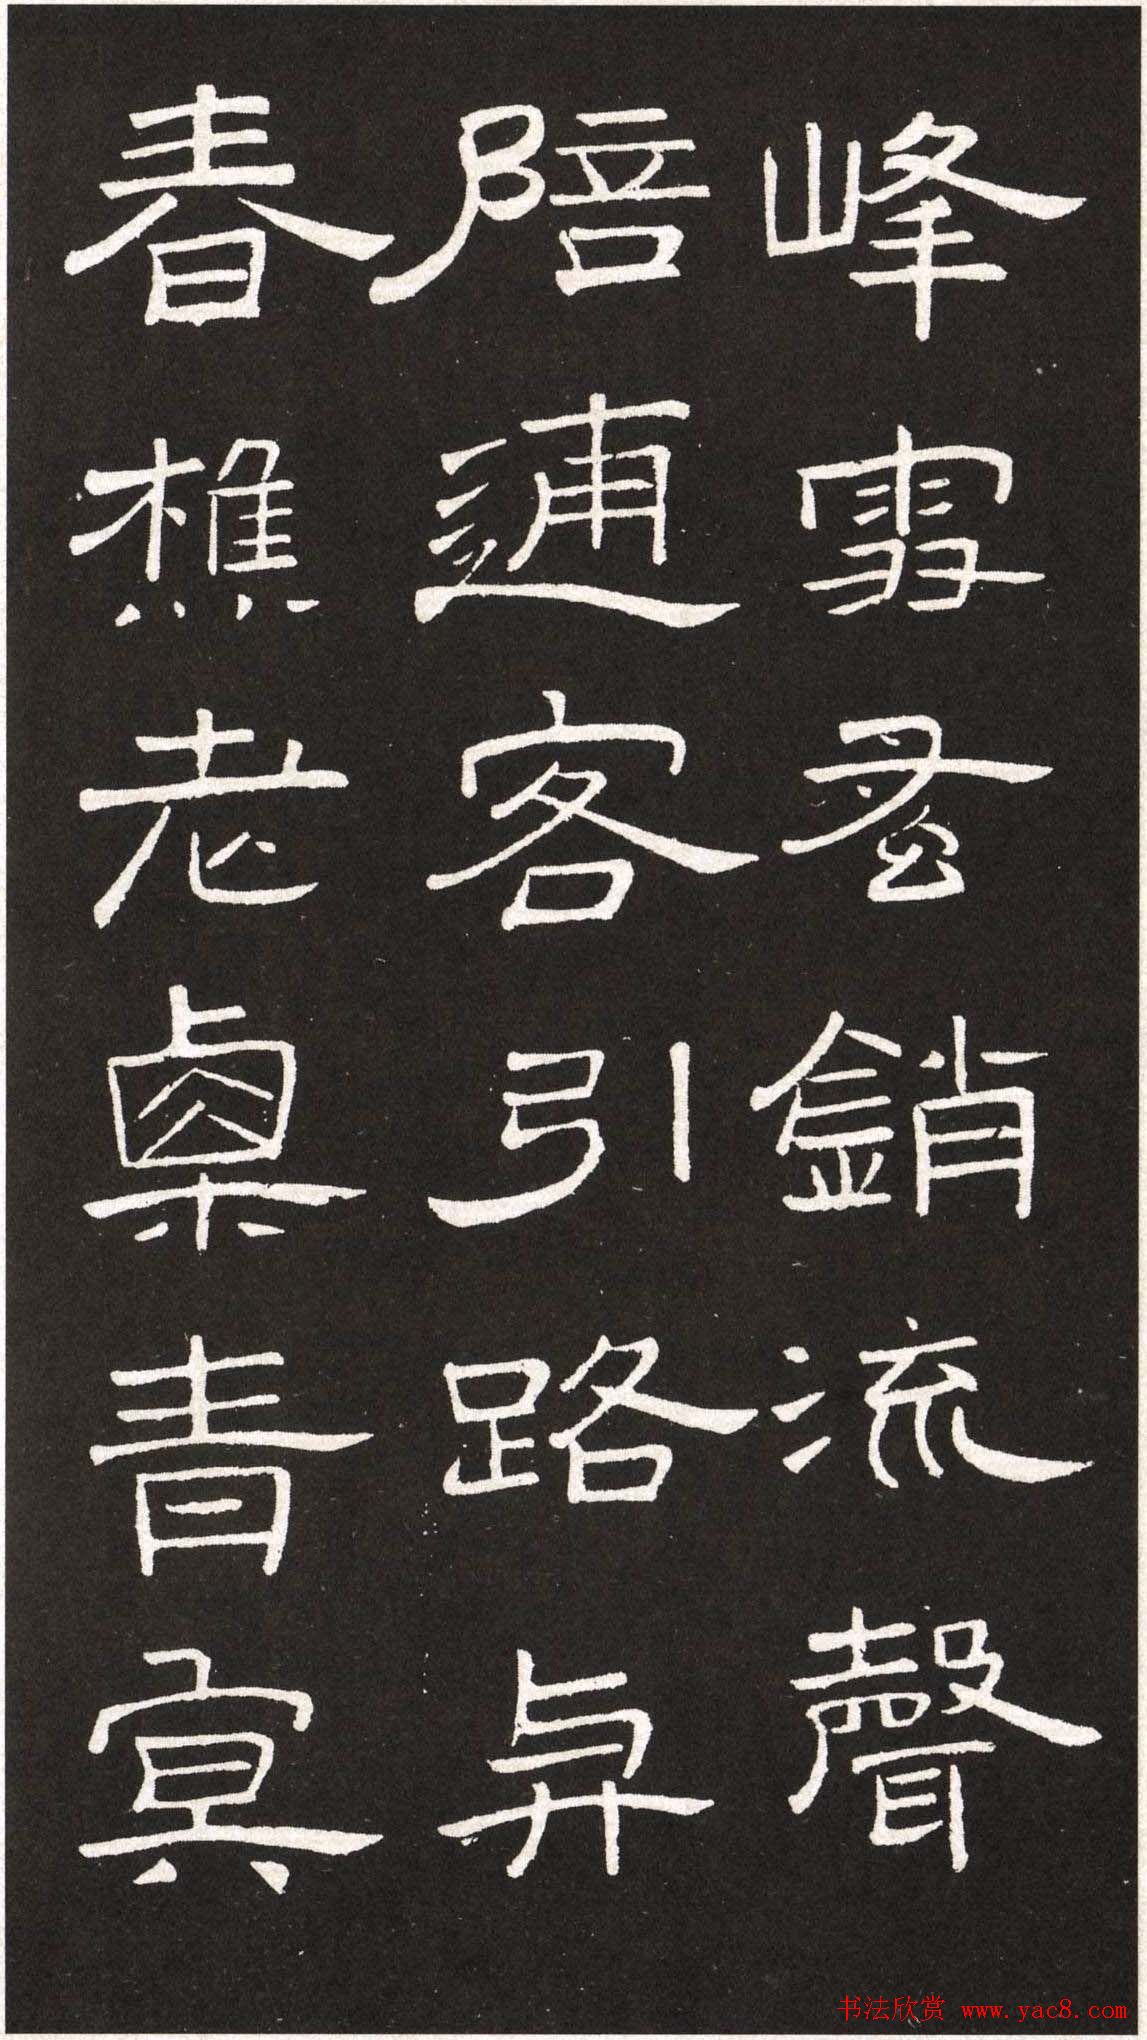 峰雪蚤銷流聲
陪逋客引路與
春樵老栗青冥
书法欣赏 www.yac8.com